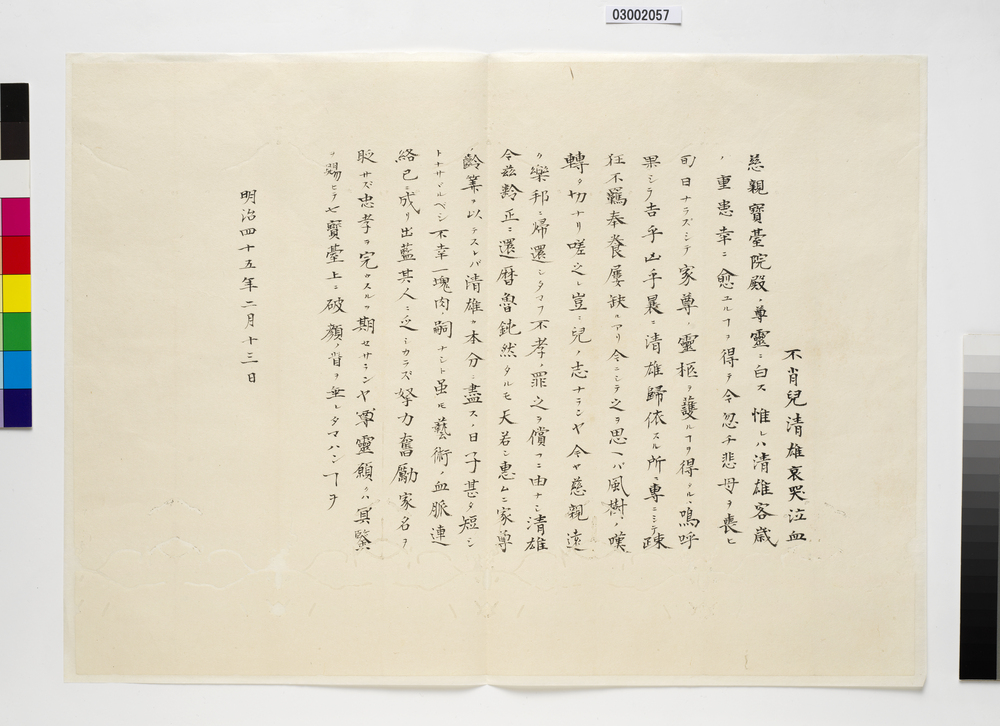 03002057
不肖児清雄哀哭泣血
慈親寳臺院殿ノ尊靈ニ白ス惟レハ清雄客歳
ノ重患幸ニ愈エルヿヲ得テ今忽チ悲母ヲ喪ヒ
旬日ナラズシテ家尊ノ靈柩ヲ護ルヿヲ得タル嗚呼
果シテ吉乎凶乎曩ニ清雄歸依スル所ニ専ニシテ疎
狂不羈奉養屢缺ルアリ今ニシテ之ヲ思ヘバ風樹ノ嘆
轉タ切ナリ嗟之レ豈ニ兒ノ志ナランヤ今ヤ慈親遠
ク樂邦ニ帰還シタマフ不孝ノ罪之ヲ償フニ由ナシ清雄
今茲齢正ニ還暦魯鈍然タルモ天若シ惠ムニ家尊
ノ齢筭ヲ以テストバ清雄カ本分ニ盡スノ日子甚タ短シ
トナサヾルベシ不幸一塊肉ノ嗣ナシト虽モ藝術ノ血脈連
絡已ニ成リ出藍其人ニ乏シカラズ孥力奮勵家名ヲ
貶サズ忠孝ヲ完ウスルヲ期セサランヤ尊靈願クハ冥鑒
ヲ賜ヒテ七寳臺上ニ破顔ノ眥ヲ垂レタマハンヿヲ
明治四十五年二月十三日